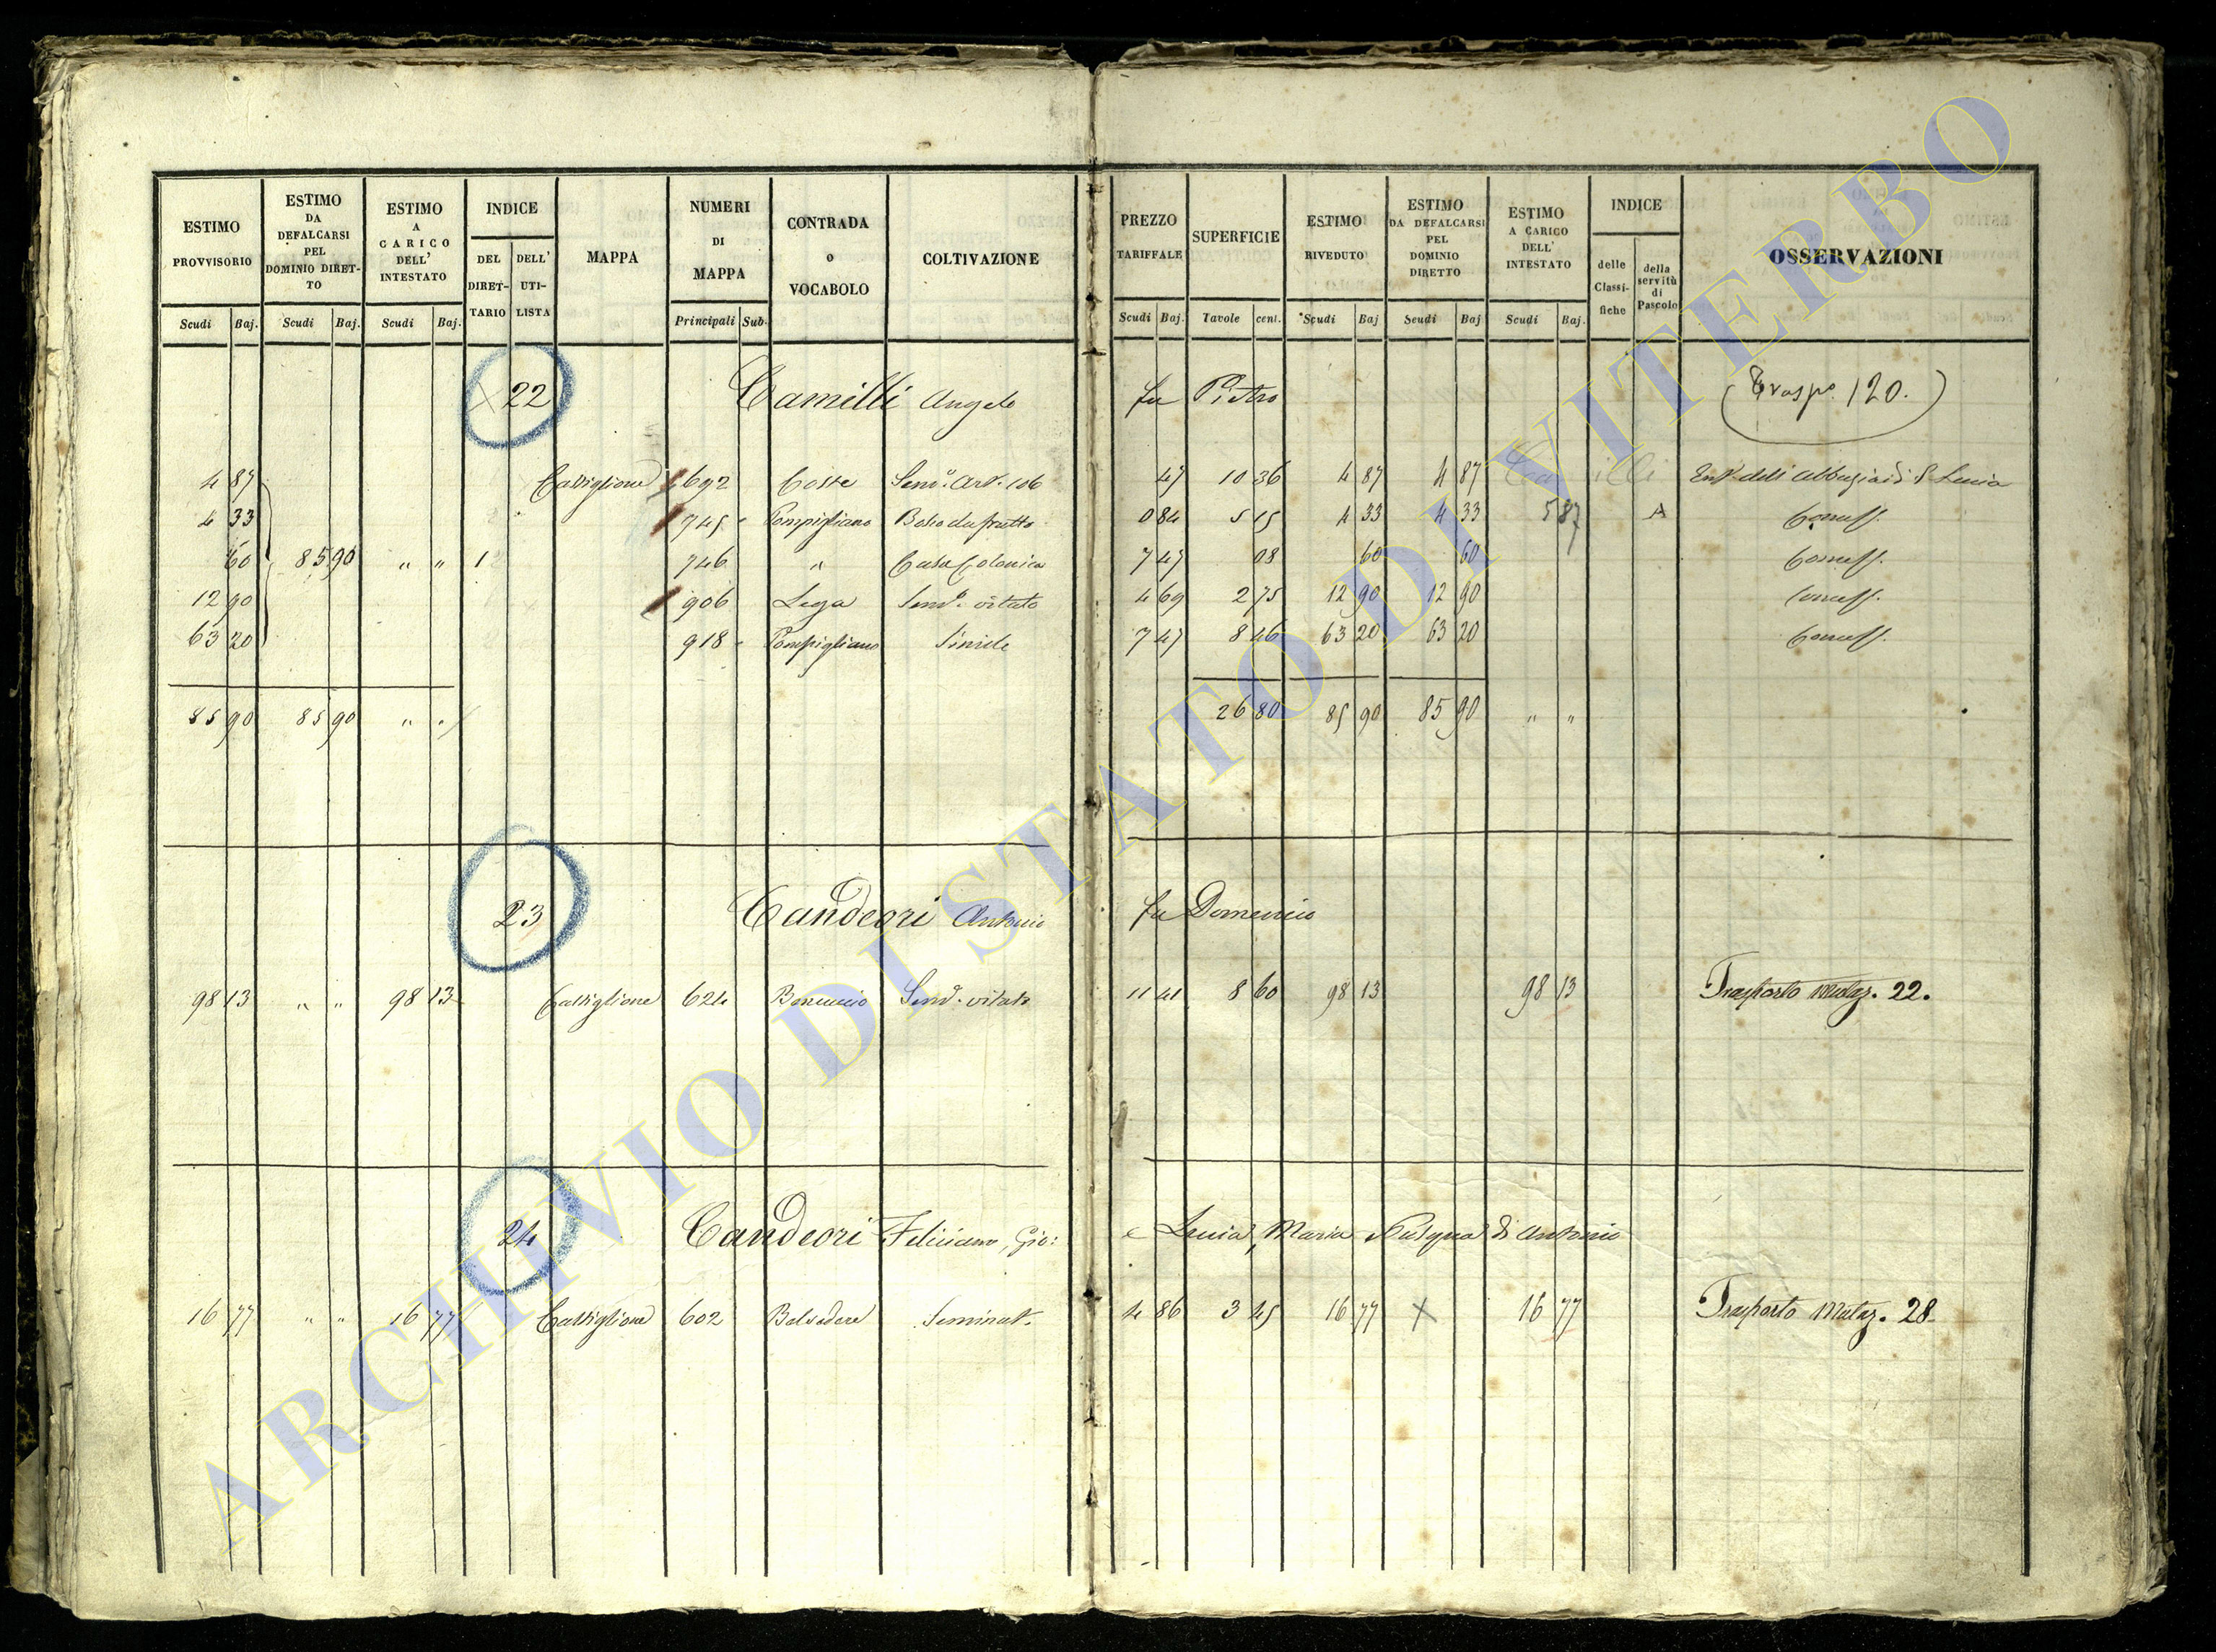 ESTIMO PROVVISORIO
ESTIMO DA DEFALCARSI PEL DOMINIO DIRET-TO
ESTIMO A CARICO DELL' INTESTATO
INDICE
DEL DIRET-TARIO
DELL' UTI-LISTA
MAPPA
NUMERI DI MAPPA
CONTRADA o VOCABOLO
COLTIVAZIONE
PREZZO TARIFFALE
SUPERFICIE
ESTIMO RIVEDUTO
ESTIMO DA DEFALCARSI PEL DOMINIO DIRETTO
ESTIMO A CARICO DELL' INTESTATO
INDICE
delle Classi-fiche
della servitù di Pascolo
OSSERVAZIONI
Scudi Baj. Scudi Baj. Scudi Baj. Principali Sub. Scudi Baj. Tavole cent. Scudi Baj Scudi Baj Scudi Baj.
22 Camilli Angelo fu Pietro (Trasp.º 120.)
4 87 Castiglione 692 Coste Sem.º Art. 106 47 10 36 4 87 4 87
4 33 745 Pompigliano 0 84 5 15 4 33 4 33 5 87 A
60 85 90 " " 1 746 " Casa Colonica 7 47 08 60 60
12 90 906 Lega Sem.º vitato 4 69 2 75 12 90 12 90
63 20 918 Pompigliano Simile 7 47 8 46 63 20 63 20
85 90 85 90 " " 26 80 85 90 85 90 " "
23 Candeori Antonio fu Domenico
98 13 " " 98 13 Castiglione 624 Sem.º vitato 11 41 8 60 98 13 98 13 Trasporto Mutaz. 22.
24 Candeori Feliciano, Gio: e Lucia, Maria di Antonio
16 77 " " 16 77 Castiglione 602 Belvedere Seminat. 4 86 3 45 16 77 X 16 77 Trasporto Mutaz. 28
ARCHIVIO DI STATO DI VITERBO